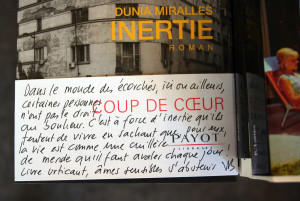 DUNIA MIRALLES
INERTIE
ROMAN
Dans le monde des écorchés, ici ou ailleurs,
certaines personnes
COUP DE CŒUR
n'ont pas le droit
au bonheur. C'est à force d'inertie qu'ils
tentent de vivre en sachant que, pour eux,
PAYOT
LIBRAIRIE
la vie est comme une cuillère
de merde qu'il faut avaler chaque jour.
Livre urticant, âmes sensibles s'abstenir